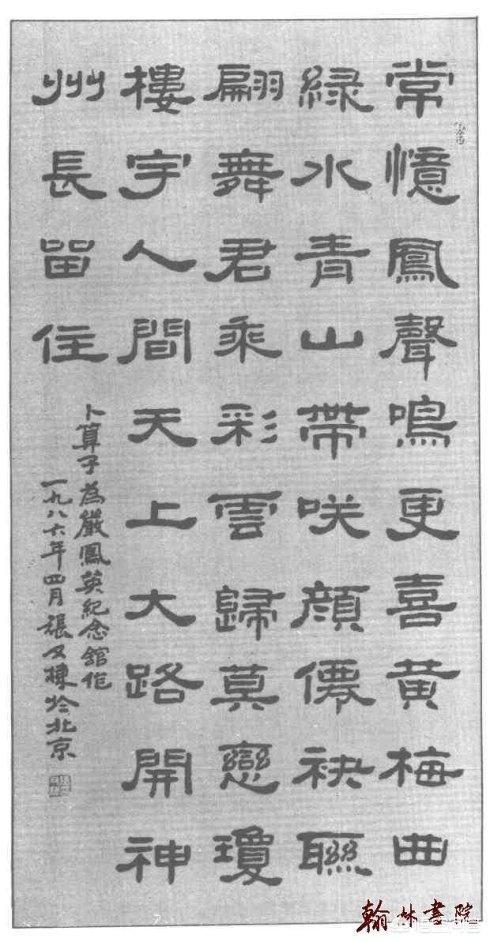 常憶鳳聲鳴更喜黃梅曲
綠水青山帶咲顔僊袂聯
翩舞君乘彩雲歸莫戀瓊
樓宇人間天上大路開神
州長留住
卜算子為嚴鳳英紀念館作
一九八六年四月張又棟於北京
翰林書院